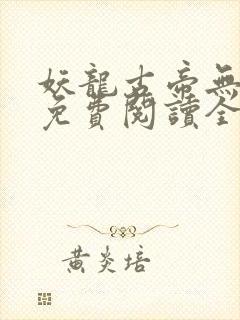 妖龍古帝無
免費閱讀全
黃炎培